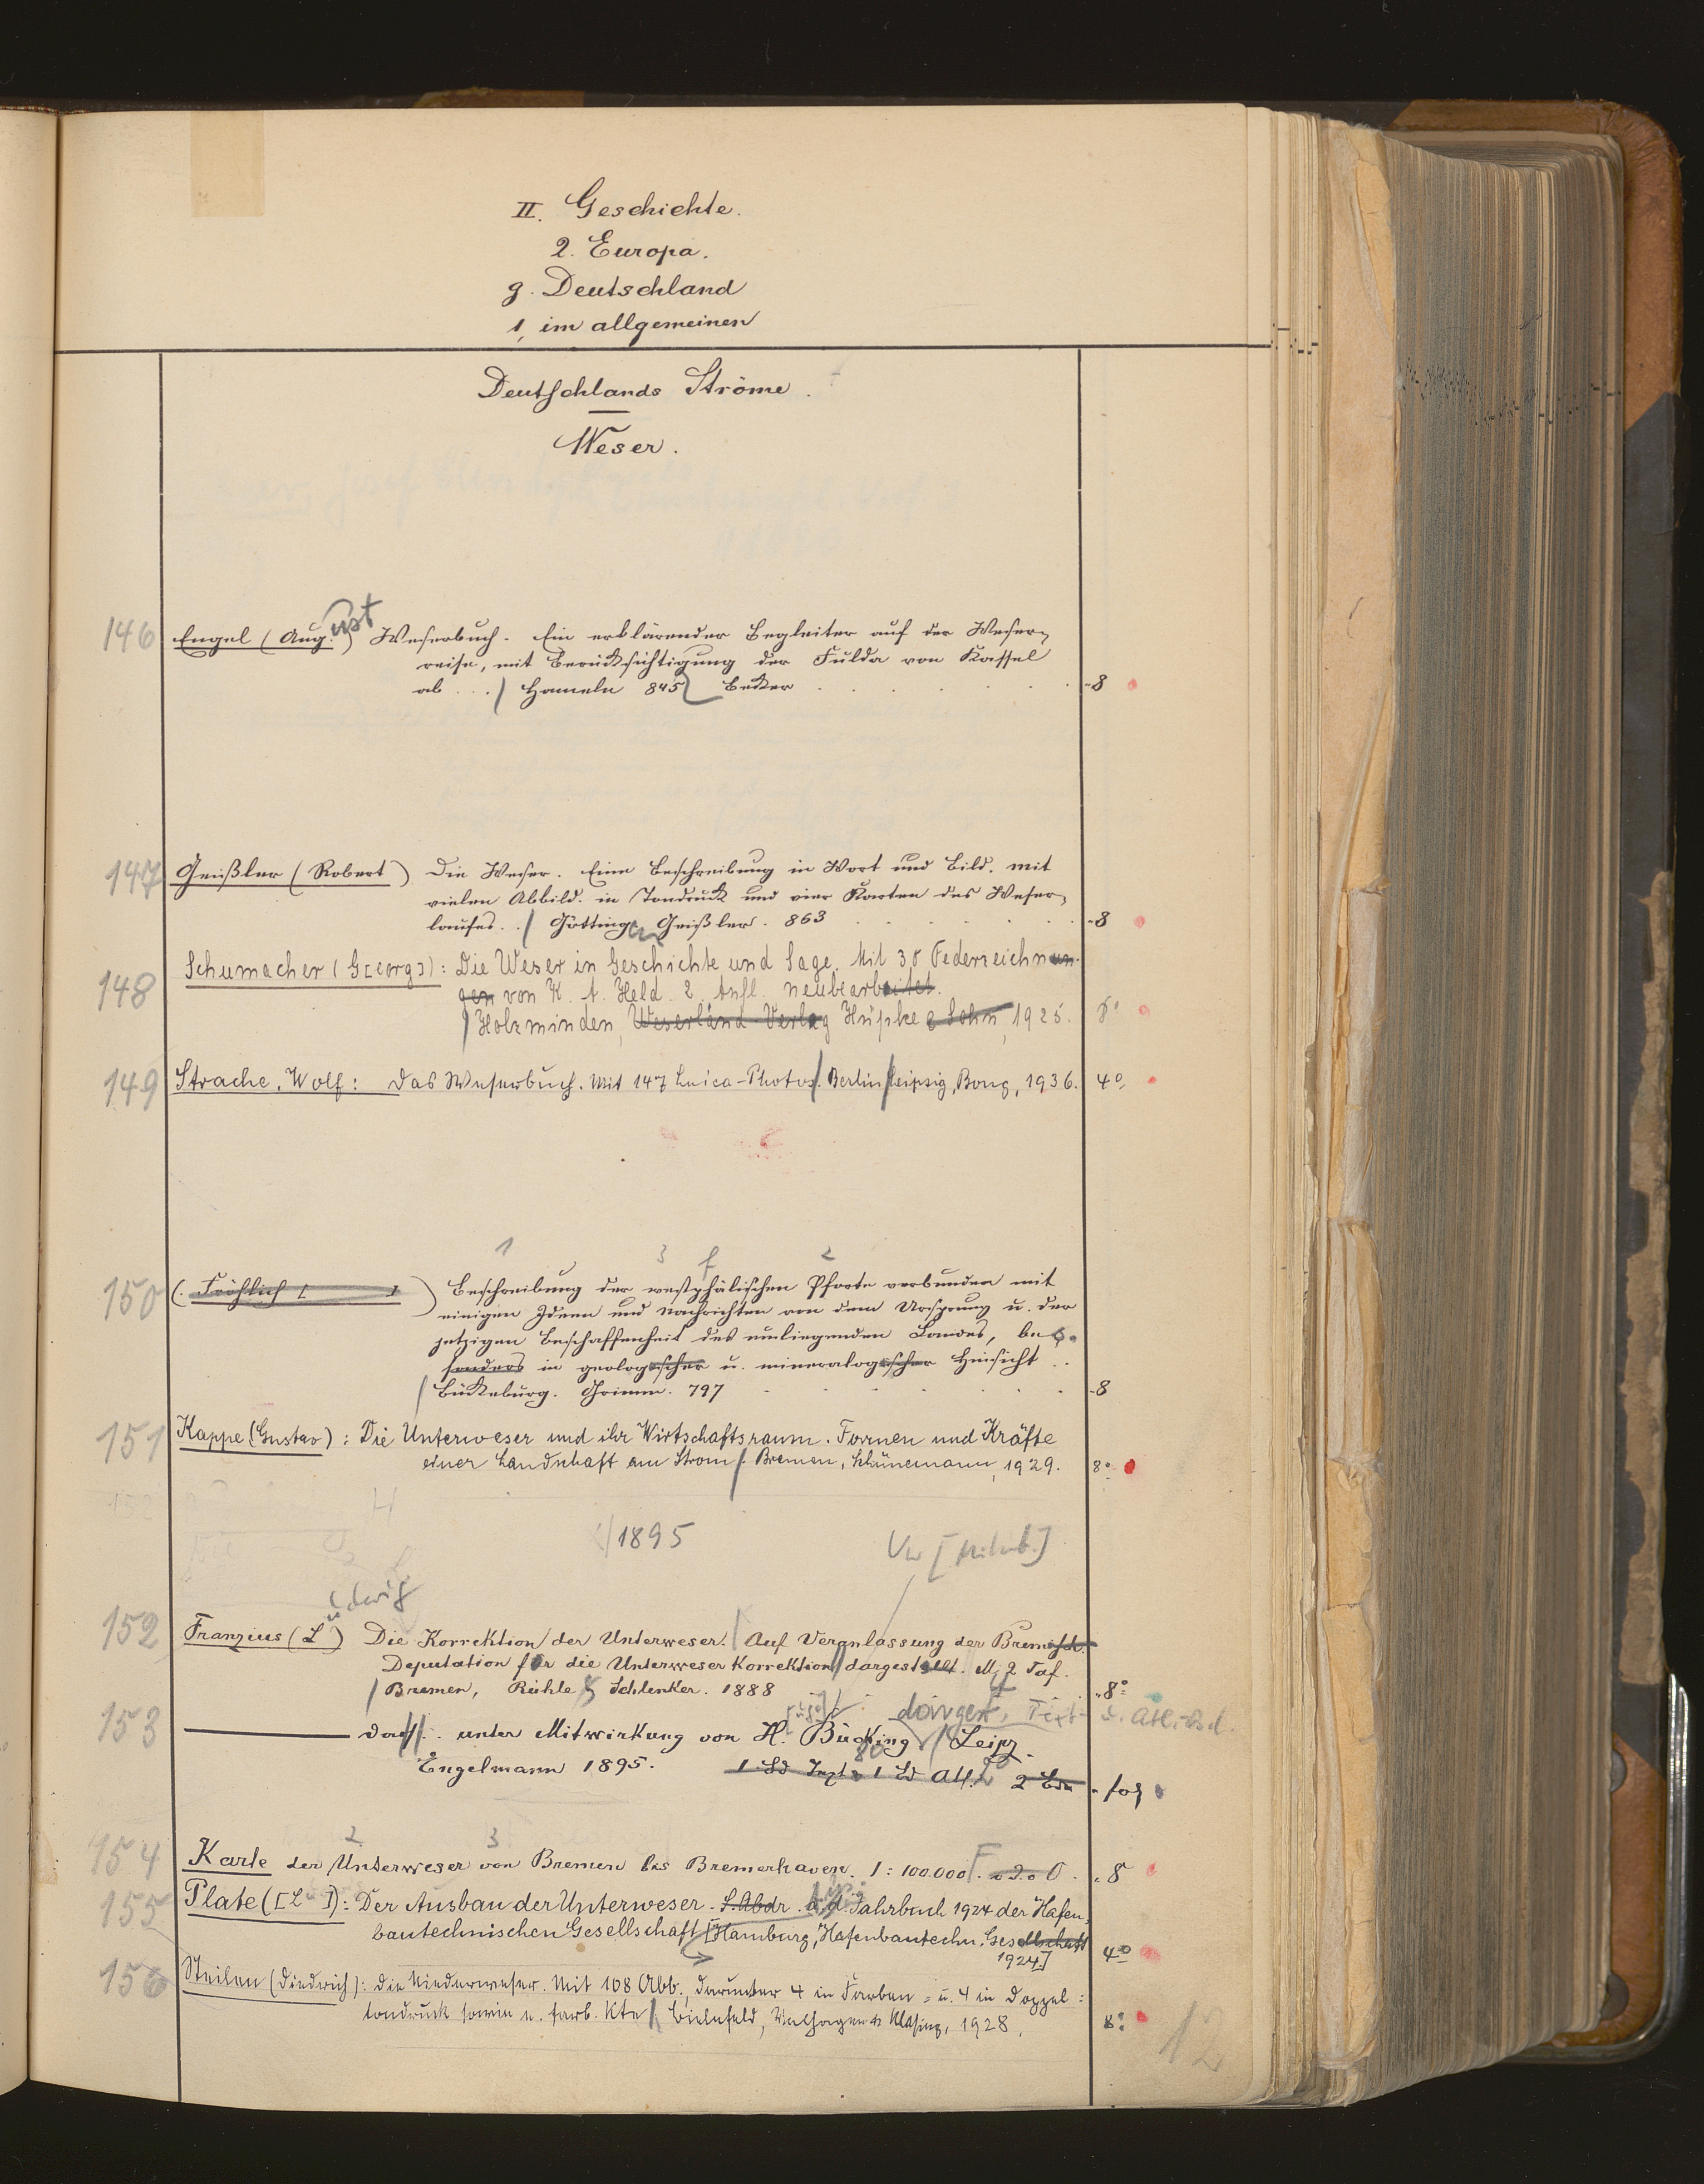 II. Geschichte.
2. Europa.
g. Deutschland
1, im allgemeinen
Deutschlands Ströme.
Weser.
146 Engel (Aug.ust) Weserbuch. Ein erklärender Begleiter auf der Weser-
reise, mit Berücksichtigung der Fulda von Kassel
ab .../ Hameln 845 Becker - 8
147 Geißler (Robert) Die Weser. Eine Beschreibung in Wort und Bild. Mit
vielen Abbild. in Tondruck und vier Karten des Weser-
laufes. ./ Götting. Geißler. 863 - 8
148 Schumacher (G[eorg]): Die Weser in Geschichte und Sage. Mit 30 Federzeichnun-
gen von K. A. Held. 2. Aufl. neubearbeitet.
/ Holzminden, Weserland-Verlag Hüpke & Sohn, 1925. 8°
149 Strache, Wolf: Das Weserbuch. Mit 147 Leica-Photos/. Berlin/Leipzig, Bong, 1936. 4°
1 3 f 2
150 (. Fröhlich [ ] ) Beschreibung der westphälischen Pforte verbunden mit
einigen Ideen und Nachrichten von dem Ursprung u. der
jetzigen Beschaffenheit des umliegenden Landes, be-
sonders in geologischer u. mineralogischer Hinsicht ..
/ Bückeburg. Grimm. 797 - 8
151 Kappe (Gustav): Die Unterweser und ihr Wirtschaftsraum. Formen und Kräfte
einer Landschaft am Strom/. Bremen, Schünemann, 1929. 8°
/1895
udwig
152 Franzius (L ) Die Korrektion der Unterweser. / Auf Veranlassung der Bremisch.
Deputation für die Unterweser Korrektion dargestellt. Mj 2 Taf.
/ Bremen, Rühle & Schlenker. 1888 - 8°
dargest. Text- u. Atl.-Bd.
153 —— dass. . unter Mitwirkung von H. Bücking / Leipz.
Engelmann 1895. 1 Bd Text & 1 Bd Atl. 2 Bde - fol
2 3
154 Karte der Unterweser von Bremen bis Bremerhaven. 1:100.000 . o. O. . 8
155 Plate ([L ]): Der Ausbau der Unterweser. S. Abdr. a. d. Jahrbuch 1924 der Hafen-
bautechnischen Gesellschaft / [Hamburg, Hafenbautechn. Gesellschaft
1924] 4°
156 Steilen (Diedrich): Die Niederweser. Mit 108 Abb., darunter 4 in Farben- u. 4 in Doppel-
tondruck sowie e. farb. Kte / Bielefeld, Velhagen & Klasing, 1928. 8°
12